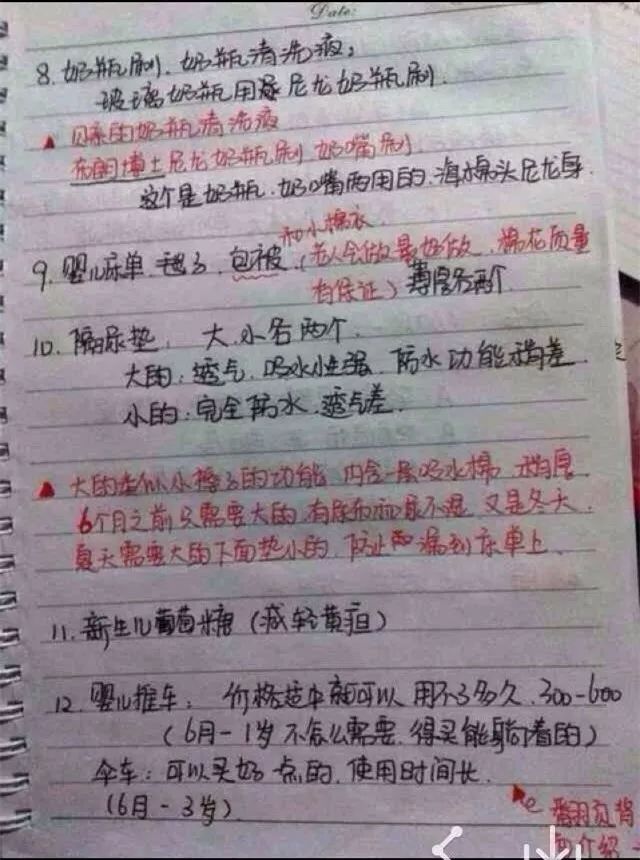 Date:
8. 奶瓶刷、奶瓶清洗液：
玻璃奶瓶用尼龙奶瓶刷
▲ 贝亲的奶瓶清洗液
布朗博士尼龙奶瓶刷 奶嘴刷
这个是奶瓶、奶嘴两用的、海棉头尼龙身
和小棉衣
9. 婴儿床单、毯子、包被（老人会做最好做、棉花质量
有保证）薄厚各两个
10. 隔尿垫、 大、小各两个
大的：透气、吸水性强、防水功能稍差
小的：完全防水、透气差
▲ 大的类似小褥子的功能 内含一层吸水棉 稍厚
6个月之前只需要大的、有尿布和尿不湿、又是冬天
夏天需要大的下面垫小的、防止漏到床单上
11. 新生儿葡萄糖（减轻黄疸）
12. 婴儿推车： 价格适中就可以 用不了多久、300-600
（6月-1岁 不怎么需要、得买能躺着的）
伞车：可以买好点的、使用时间长
（6月-3岁）
翻页背
面介绍